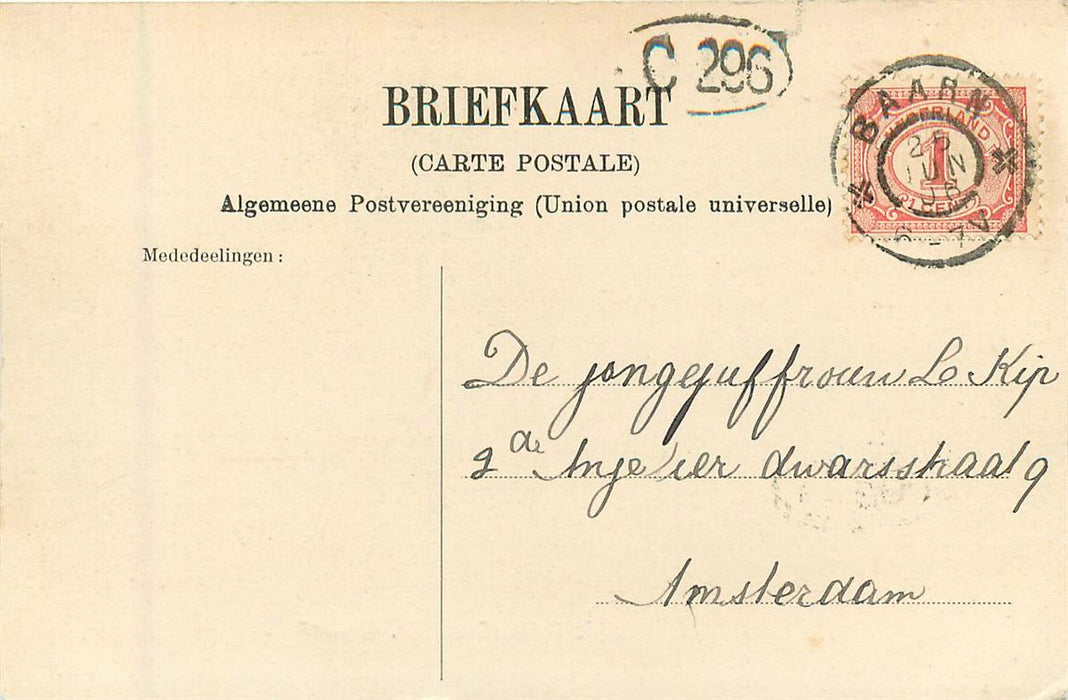 C 296
BRIEFKAART
(CARTE POSTALE)
Algemeene Postvereeniging (Union postale universelle)
BAARN
25 JUN
6-7V
NEDERLAND
1
Mededeelingen:
De jongejuffrouw L Kip
2de Anjelier dwarsstraat 9
Amsterdam